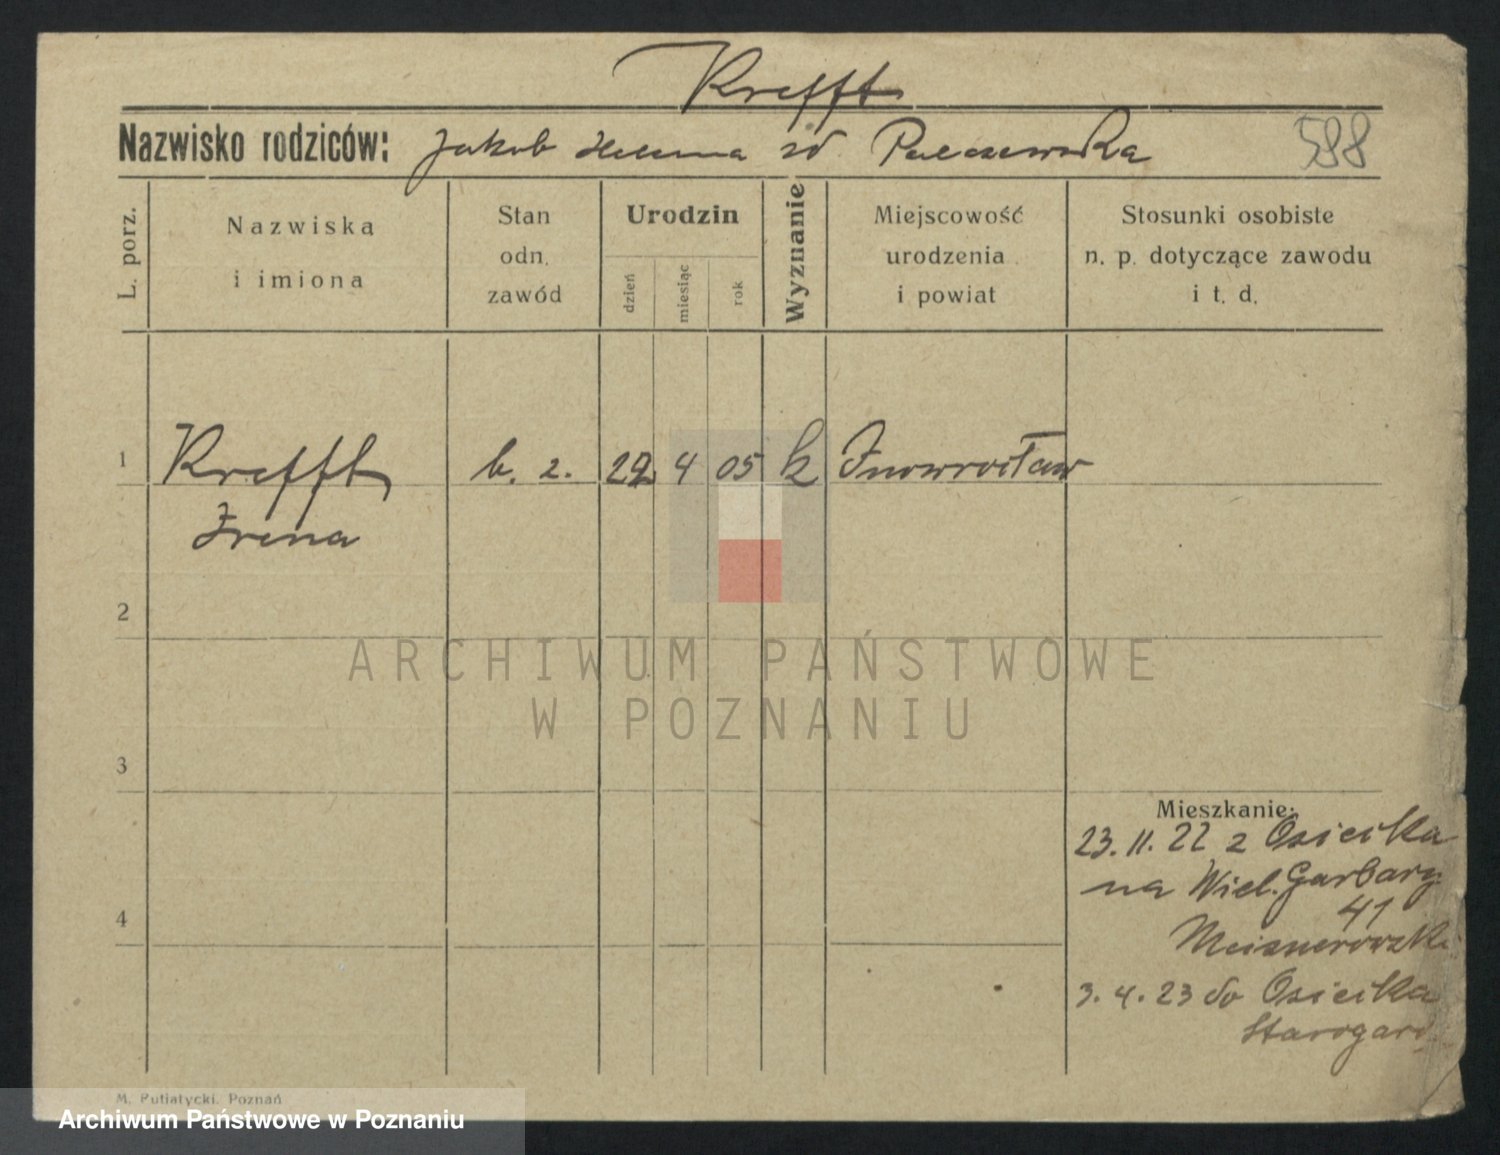 Krefft
Nazwisko rodziców: Jakob Helena zd. Palaszewska 588
L. porz.
Nazwiska
i imiona
Stan
odn.
zawód
Urodzin
dzień
miesiąc
rok
Wyznanie
Miejscowość
urodzenia
i powiat
Stosunki osobiste
n. p. dotyczące zawodu
i t. d.
1 Krefft b. z. 22 4 05 k Inowrocław
Irena
2
ARCHIWUM PAŃSTWOWE
W POZNANIU
3
Mieszkanie:
23. 11. 22 z Osieczka
na Wiel. Garbary
4
41
3. 4. 23 do Osieczka
Starogard
M. Putiatycki, Poznań
Archiwum Państwowe w Poznaniu